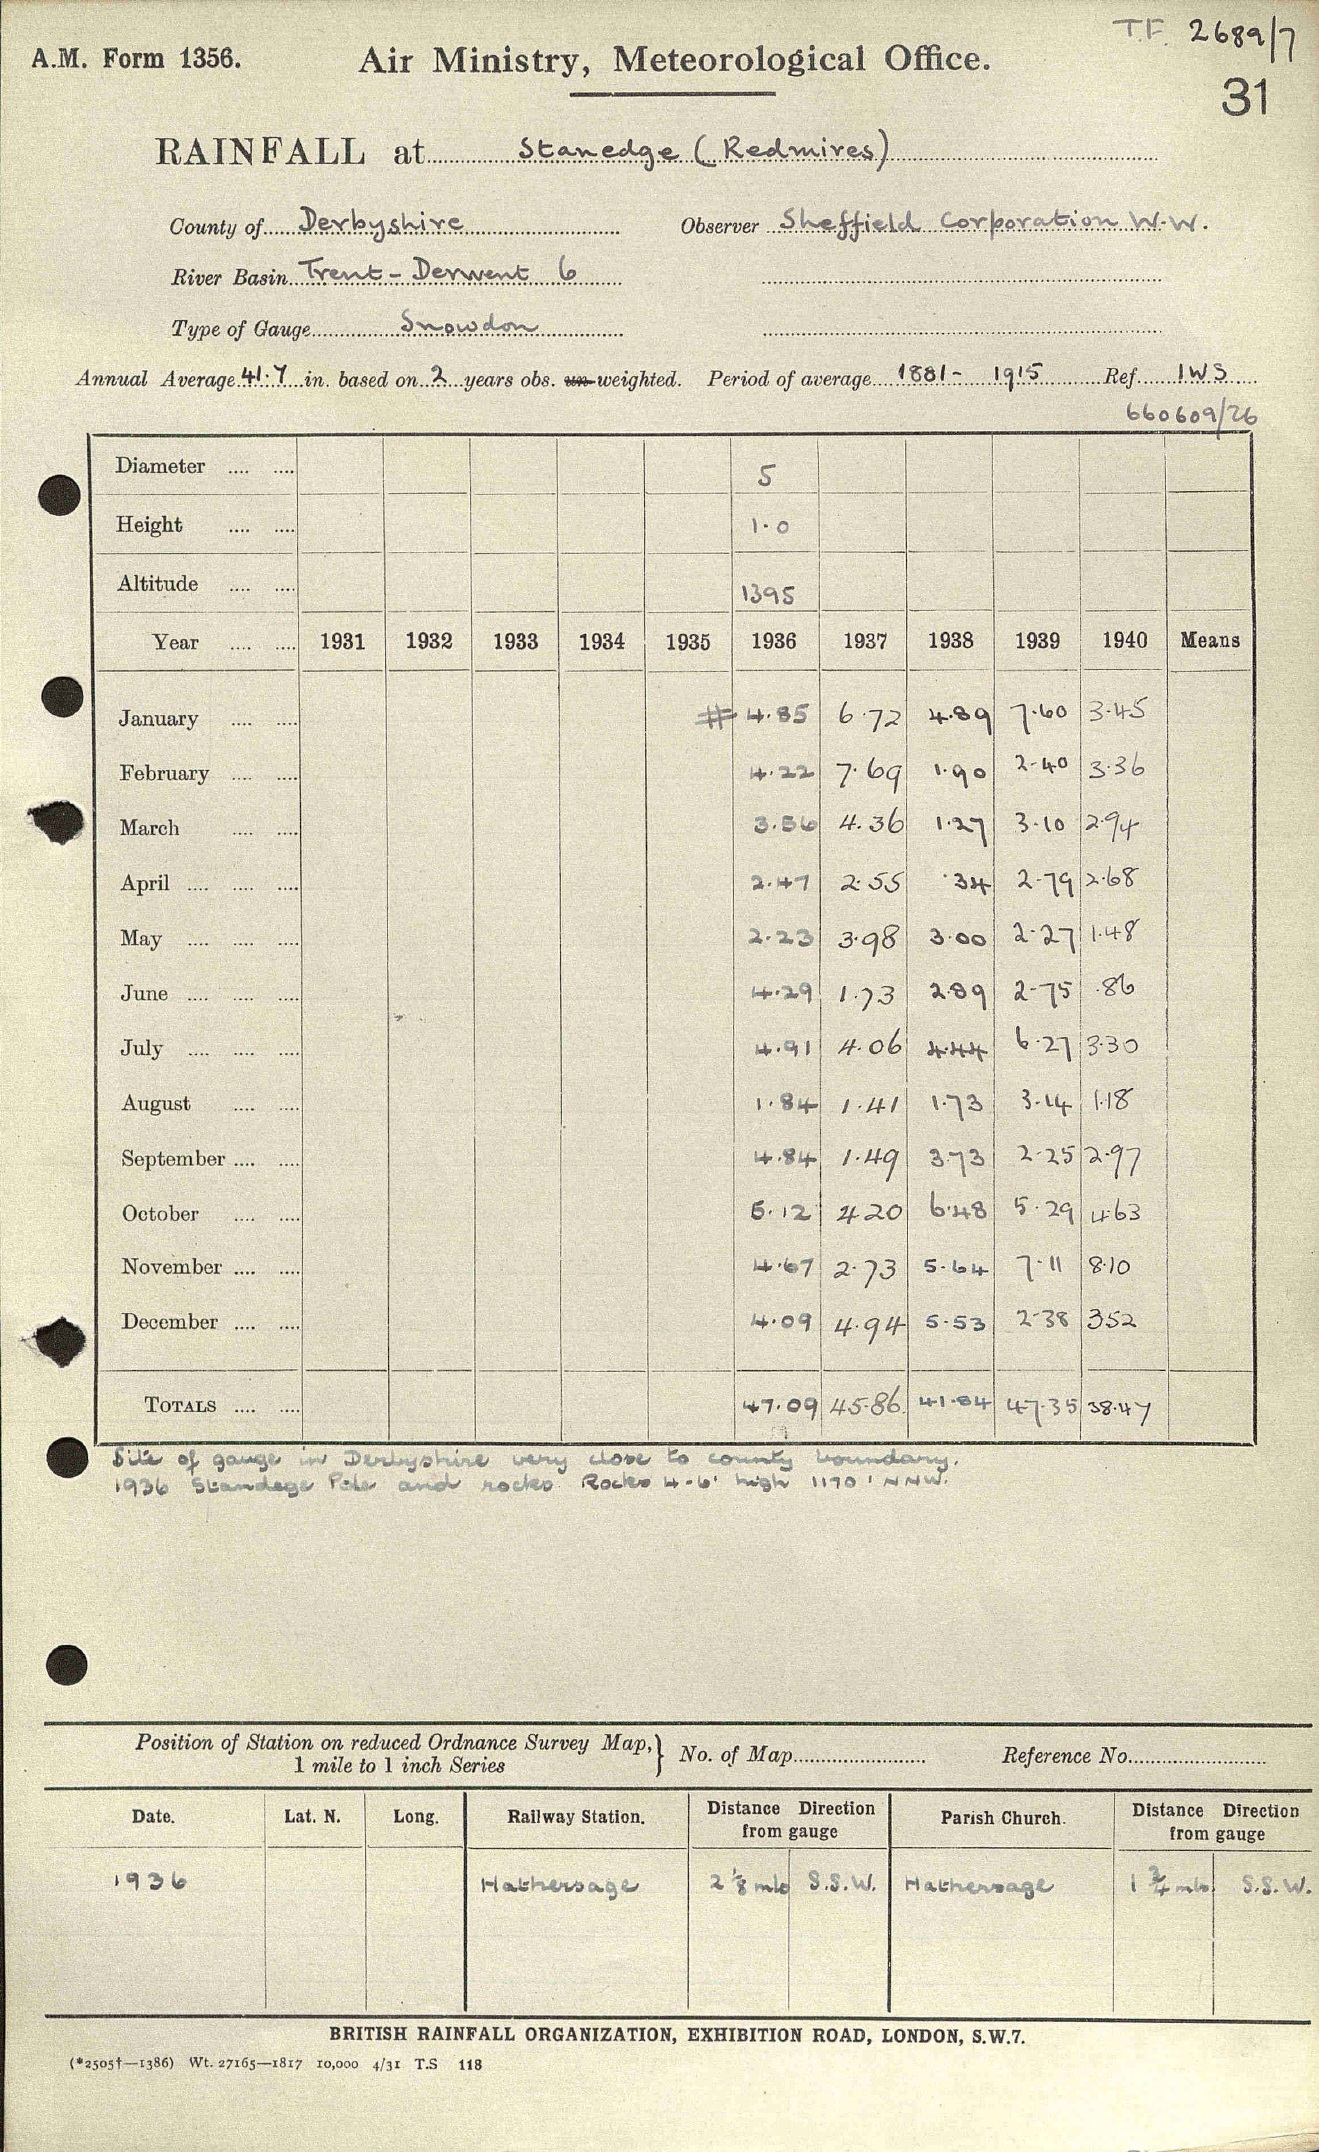 T.F. 2689/7
A.M. Form 1356. Air Ministry, Meteorological Office.
31
RAINFALL at Stanedge (Redmires)
County of Derbyshire Observer Sheffield Corporation W.W.
River Basin Trent - Derwent 6
Type of Gauge Snowdon
Annual Average 41.7 in. based on 2 years obs. un-weighted. Period of average 1881 - 1915 Ref. IWS
660609/26
Diameter .... .... 5
Height .... .... 1.0
Altitude .... .... 1395
Year .... .... 1931 1932 1933 1934 1935 1936 1937 1938 1939 1940 Means
January .... .... # 4.85 6.72 4.89 7.60 3.45
February .... .... 4.22 7.69 1.90 2.40 3.36
March .... .... 3.56 4.36 1.27 3.10 2.94
April .... .... .... 2.47 2.55 .34 2.79 2.68
May .... .... .... 2.23 3.98 3.00 2.27 1.48
June .... .... .... 4.29 1.73 2.89 2.75 .86
July .... .... .... 4.91 4.06 4.44 6.27 3.30
August .... .... 1.84 1.41 1.73 3.14 1.18
September .... .... 4.84 1.49 3.73 2.25 2.97
October .... .... 5.12 4.20 6.48 5.29 4.63
November .... .... 4.67 2.73 5.64 7.11 8.10
December .... .... 4.09 4.94 5.53 2.38 3.52
TOTALS .... .... 47.09 45.86 41.84 47.35 38.47
Site of gauge in Derbyshire very close to county boundary.
1936 Standege Pole and rocks. Rocks 4-6' high 1170' NNW.
Position of Station on reduced Ordnance Survey Map,} No. of Map Reference No.
1 mile to 1 inch Series
Date. Lat. N. Long. Railway Station. Distance Direction from gauge Parish Church. Distance Direction from gauge
1936 Hathersage 2 1/8 mls S.S.W. Hathersage 1 3/4 mls. S.S.W.
BRITISH RAINFALL ORGANIZATION, EXHIBITION ROAD, LONDON, S.W.7.
(*2505†—1386) Wt. 27165—1817 10,000 4/31 T.S 118